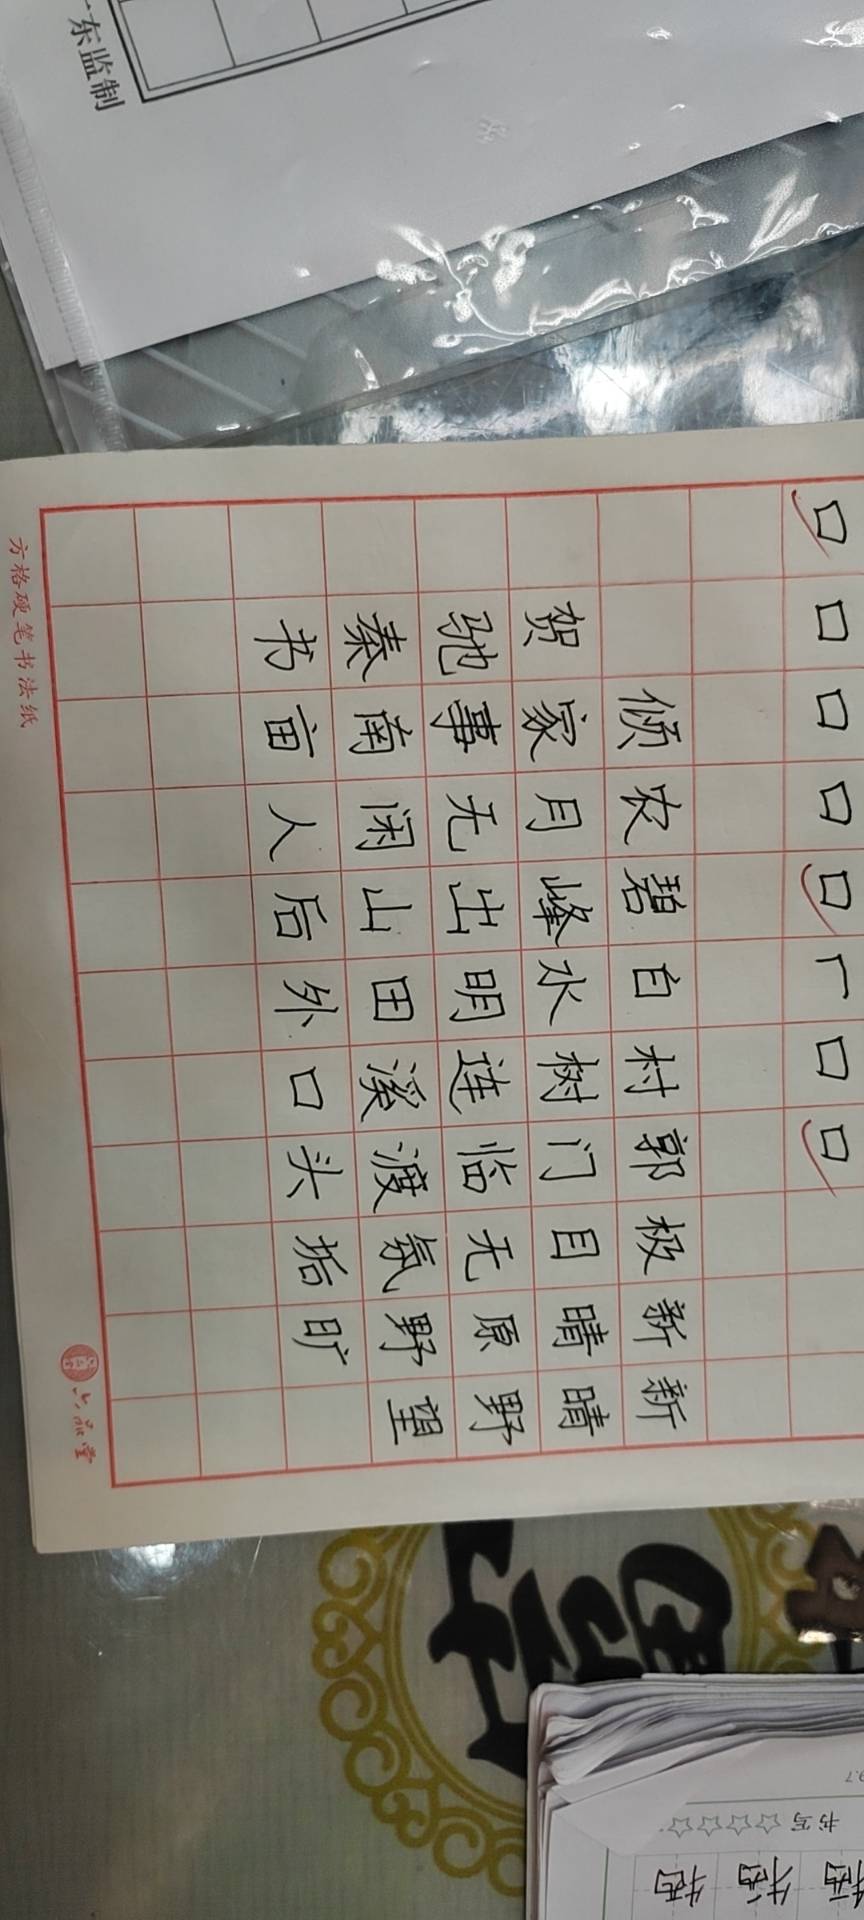 口
口
厂
口
口
口
口
口
新晴野望
新晴原野旷
极目无氛垢
郭门临渡头
村树连溪口
白水明田外
碧峰出山后
农月无闲人
倾家事南亩
贺驰秦书
方格硬笔书法纸
六品堂
东监制
书写